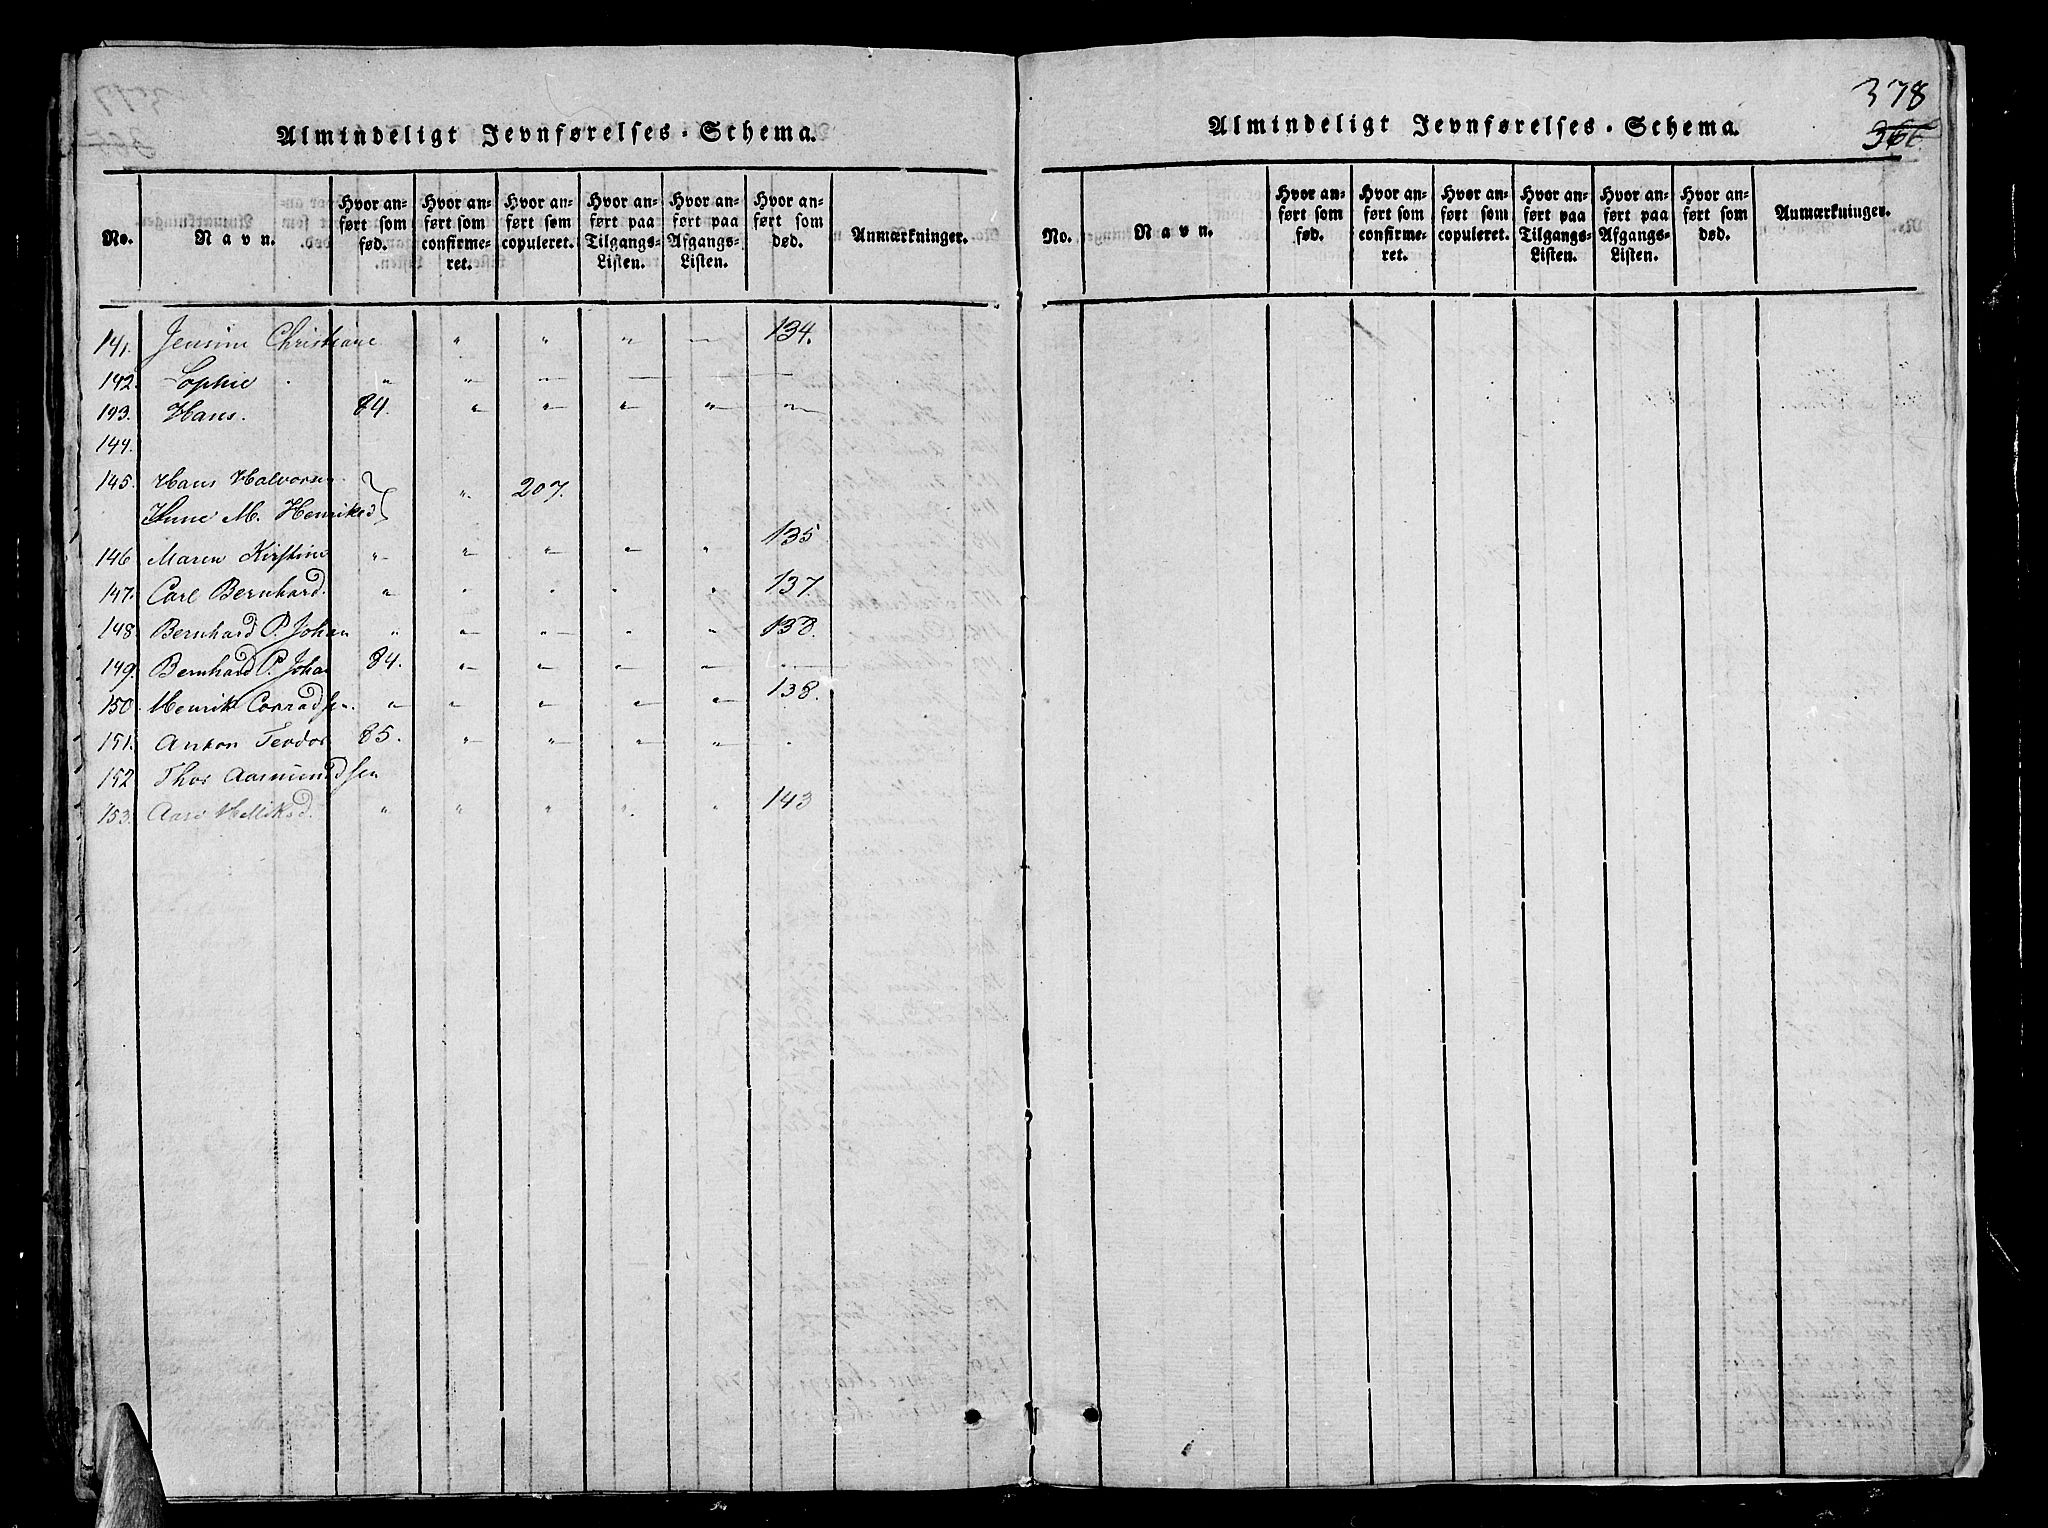 Almindeligt Jevnførelses-Schema.
No.
Navn.
Hvor anført som fød.
Hvor anført som confirmeret.
Hvor anført som copuleret.
Hvor anført paa Tilgangs-Listen.
Hvor anført paa Afgangs-Listen.
Hvor anført som død.
Anmærkninger.
141. Jensine Christiane " " " — 134.
142. Sophie " " — — — —
193. Hans. 84. " " " " —
144.
145. Hans Halvorsen
Anne M. Henriksd } " 207.
146 Maren Kirstine " " " " " 135
147. Carl Bernhard. " " " " " 137.
148. Bernhard P. Johan " " " " " 138.
149. Bernhard P. Johan 84. " " " " —
150. Henrik Conradsen. " " " " " 138.
151. Anton Teodor 85. " " " "
152 Thor Aasmundsen
153. Aase Helliksd. " " " " " 143
378
366.
Almindeligt Jevnførelses-Schema.
No.
Navn.
Hvor anført som fød.
Hvor anført som confirmeret.
Hvor anført som copuleret.
Hvor anført paa Tilgangs-Listen.
Hvor anført paa Afgangs-Listen.
Hvor anført som død.
Anmærkninger.